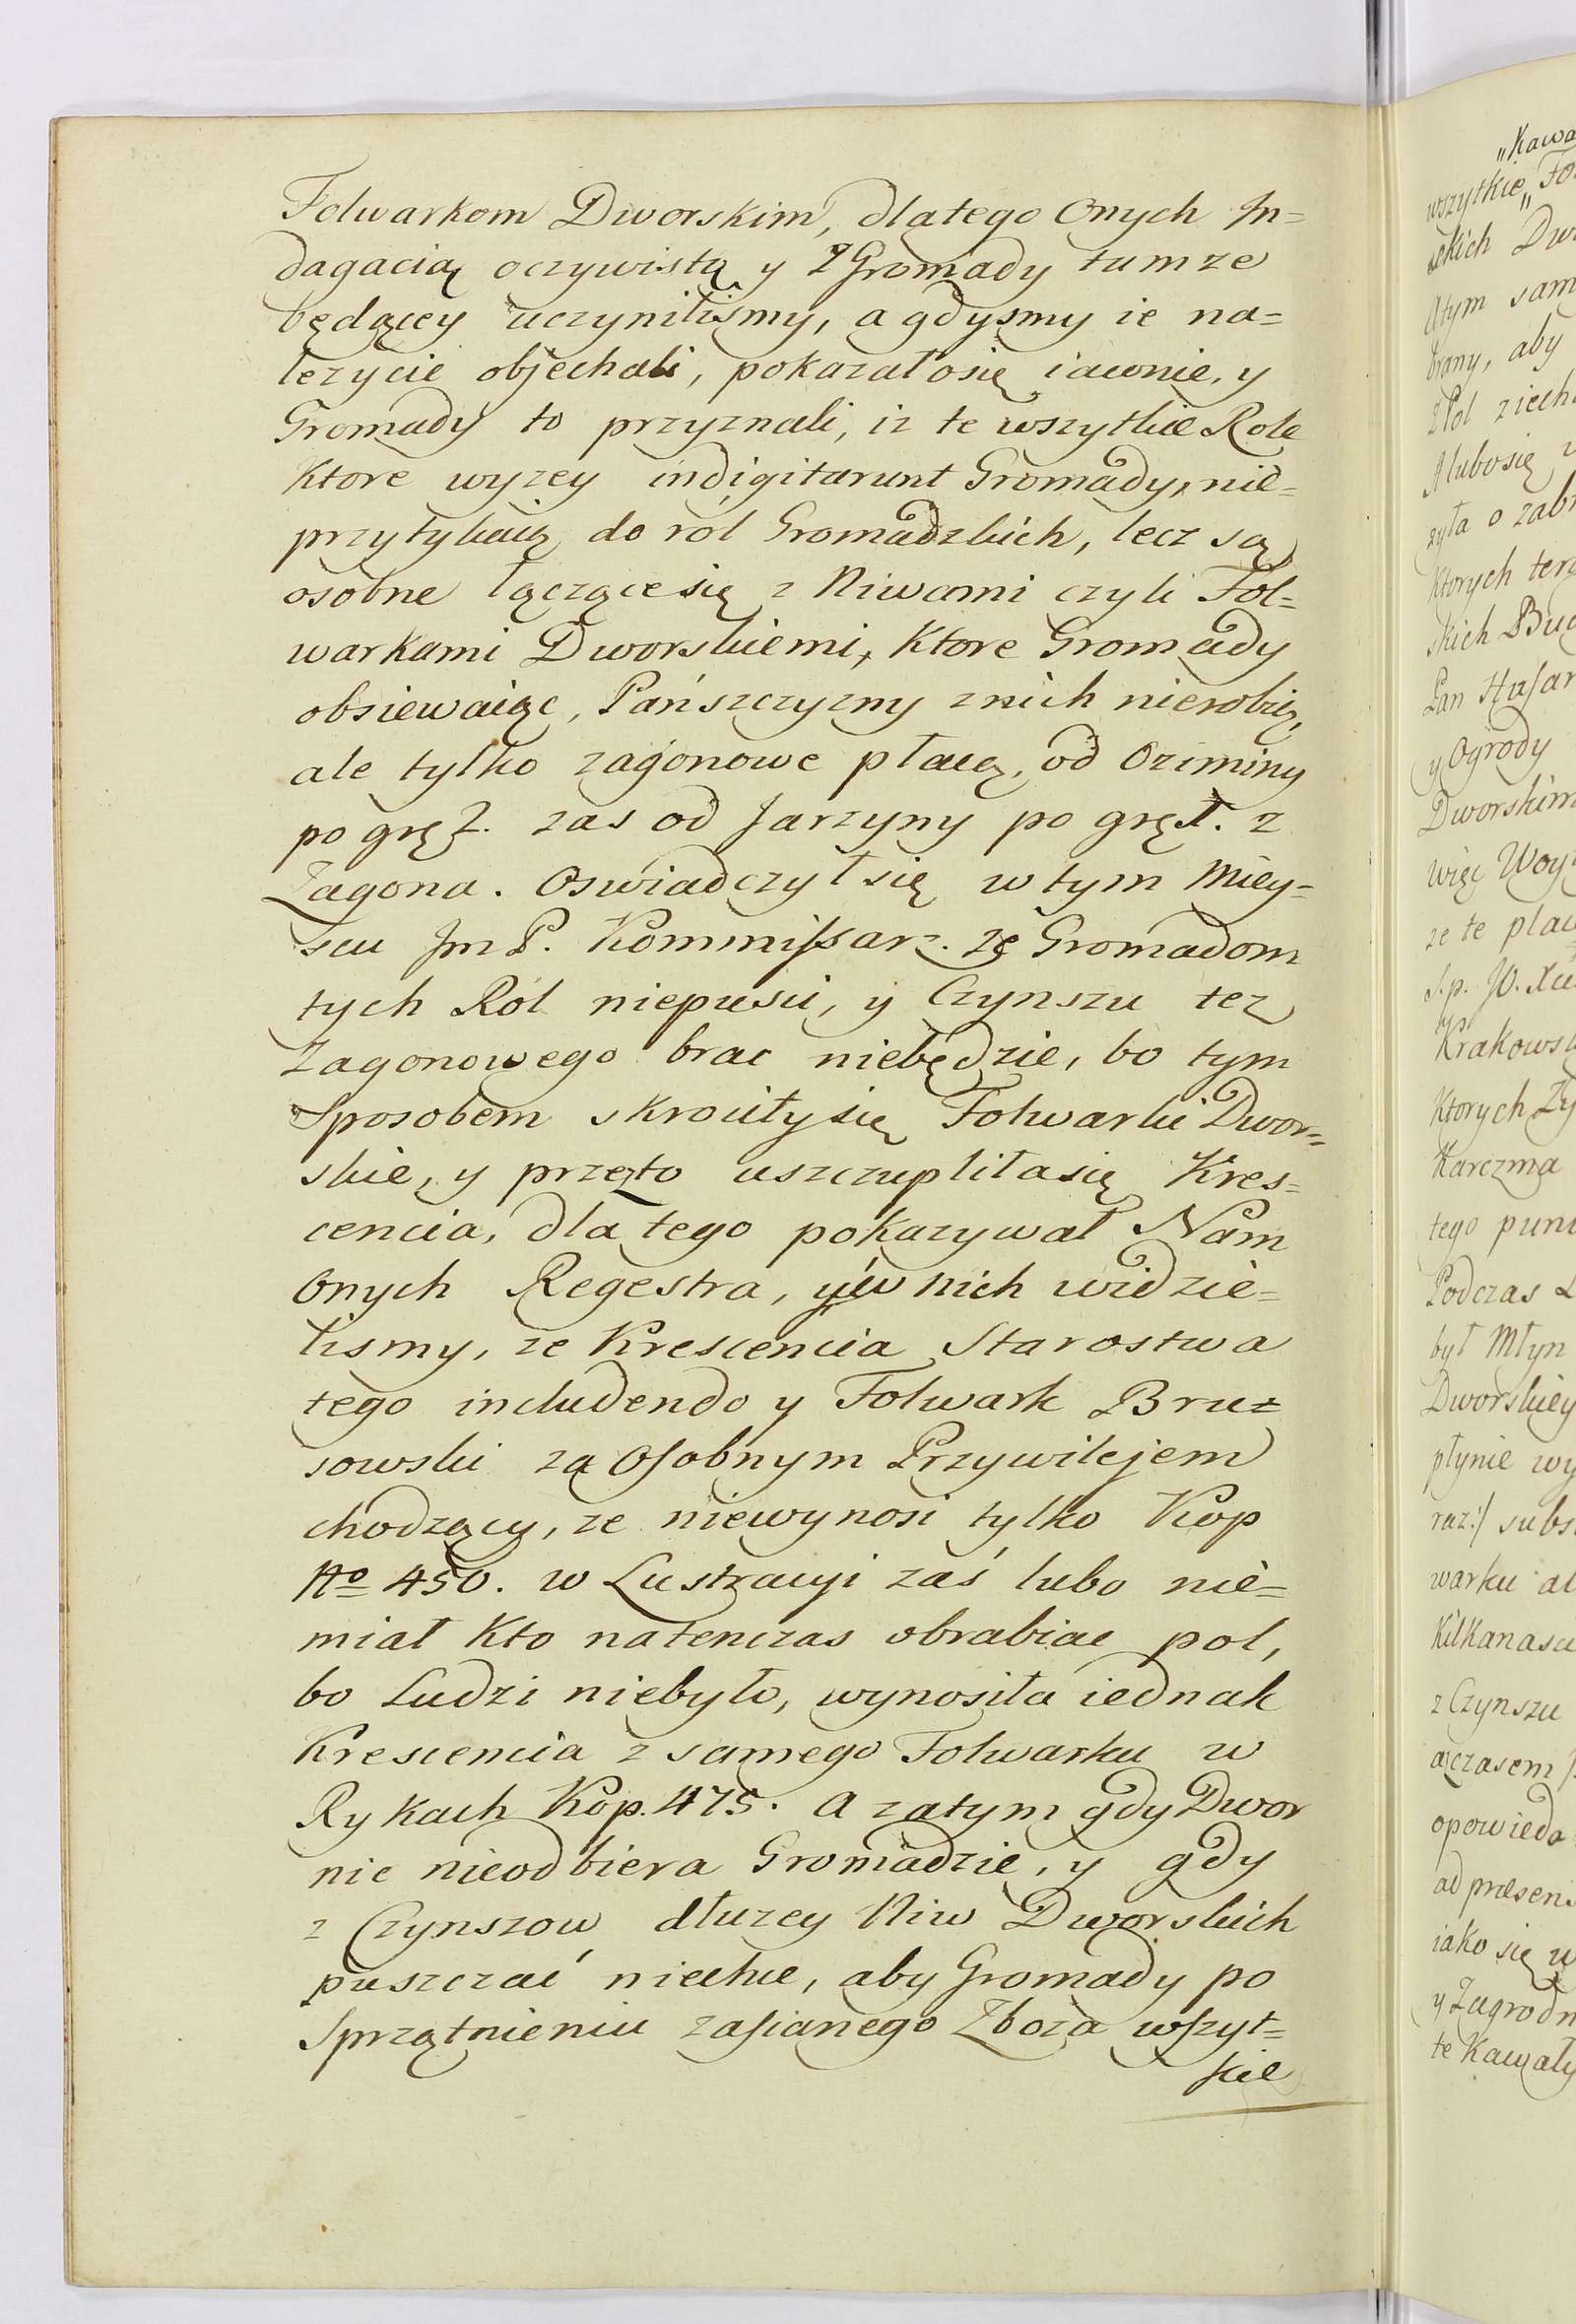 Folwarkom Dworskim, dlatego Onych In=
dagacią oczywistą y z Gromady tamze
będącey uczynilismy, a gdysmy ie na=
lezycie objechali, pokazałosię iawnie, y
Gromady to przyznali, iz te wszytkie Role
Ktore wyzey indigitarunt Gromady, nie=
przytykaią do ról Gromadzkich, lecz są
osobne łączącesię z Niwami czyli Fol=
warkami Dworskiemi, Ktore Gromady
obsiewaiąc, Pańszczyzny znich nierobią,
ale tylko zagonowe płacą, od Oziminy
po grę 2. zas od Jarzyny po grę 1. z
Zagona. Oswiadczył się w tym Miey=
scu Jm P. Kommissarz. ze Gromadom
tych Ról niepusci, y Czynszu tez
Zagonowego brac niebędzie, bo tym
Sposobem skrociły się Folwarki Dwor=
skie, y przezto uszczupliłasię Kres=
cencia, dla tego pokazywał Nam
Onych Regestra, y w nich widzie=
lismy, ze Krescencia Starostwa
tego includendo y Folwark Bru=
sowski za Osobnym Przywilejem
chodzący, ze niewynosi tylko Kop
No 450. w Lustracyi zaś lubo nie=
miał Kto natenczas obrabiac pol,
bo Ludzi niebyło, wynosiła iednak
Krescencia z samego Folwarku w
Rykach Kop. 475. a zatym gdy Dwor
nic nieodbiera Gromadzie, y gdy
z Czynszow dłuzey Niw Dworskich
puszczać niechce, aby Gromady po
Sprzątnieniu zasianego Zboza wszyt=
kie
"Kawa
wszytkie" Fol
skich Dw
Atym sam
brany, aby
z Pol ziech
Alubosię
zyła o zab
Ktorych ter
skich Bu
Pan Hasar
y Ogrody
Dworskim
Więc Woy
ze te pla
S.p. JO. Xu
Krakows
Ktorych Zy
Karczma
tego pun
Podczas L
był Młyn
Dworskiey
płynie wy
raz:/ subs
warku al
Kilkanasc
z Czynszu
aczasem
opowieda
ad præsens
iako się w
y Zagrodn
te Kawały